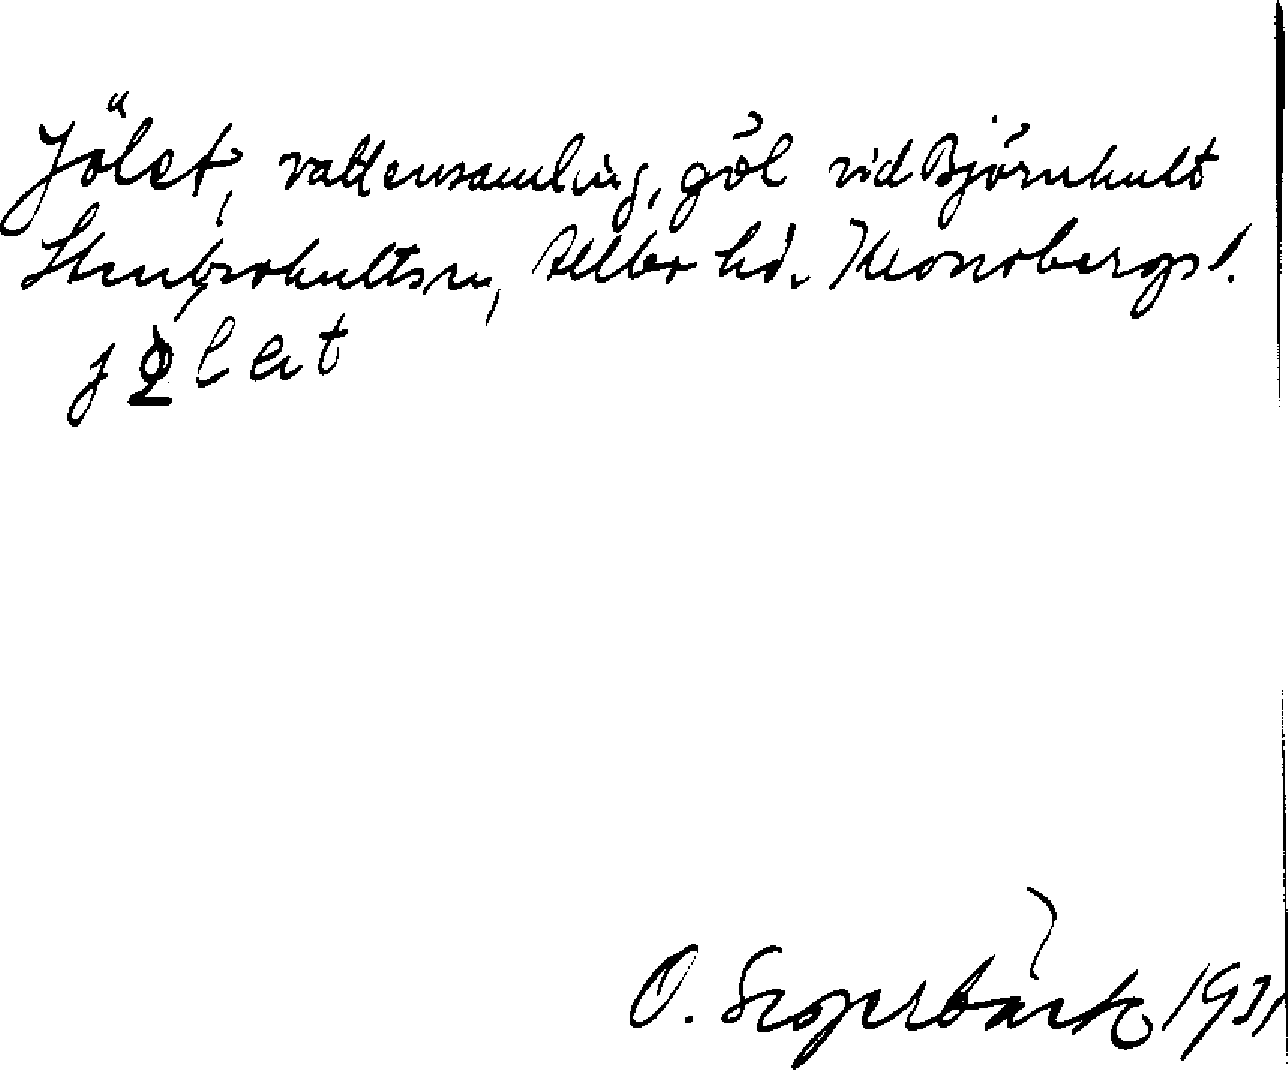 Jölet, vattensamling, göl vid Björnhult
Stenbrohults sn, Allbo hd. Kronobergs l.
jölet
O. Segerbäck 1931